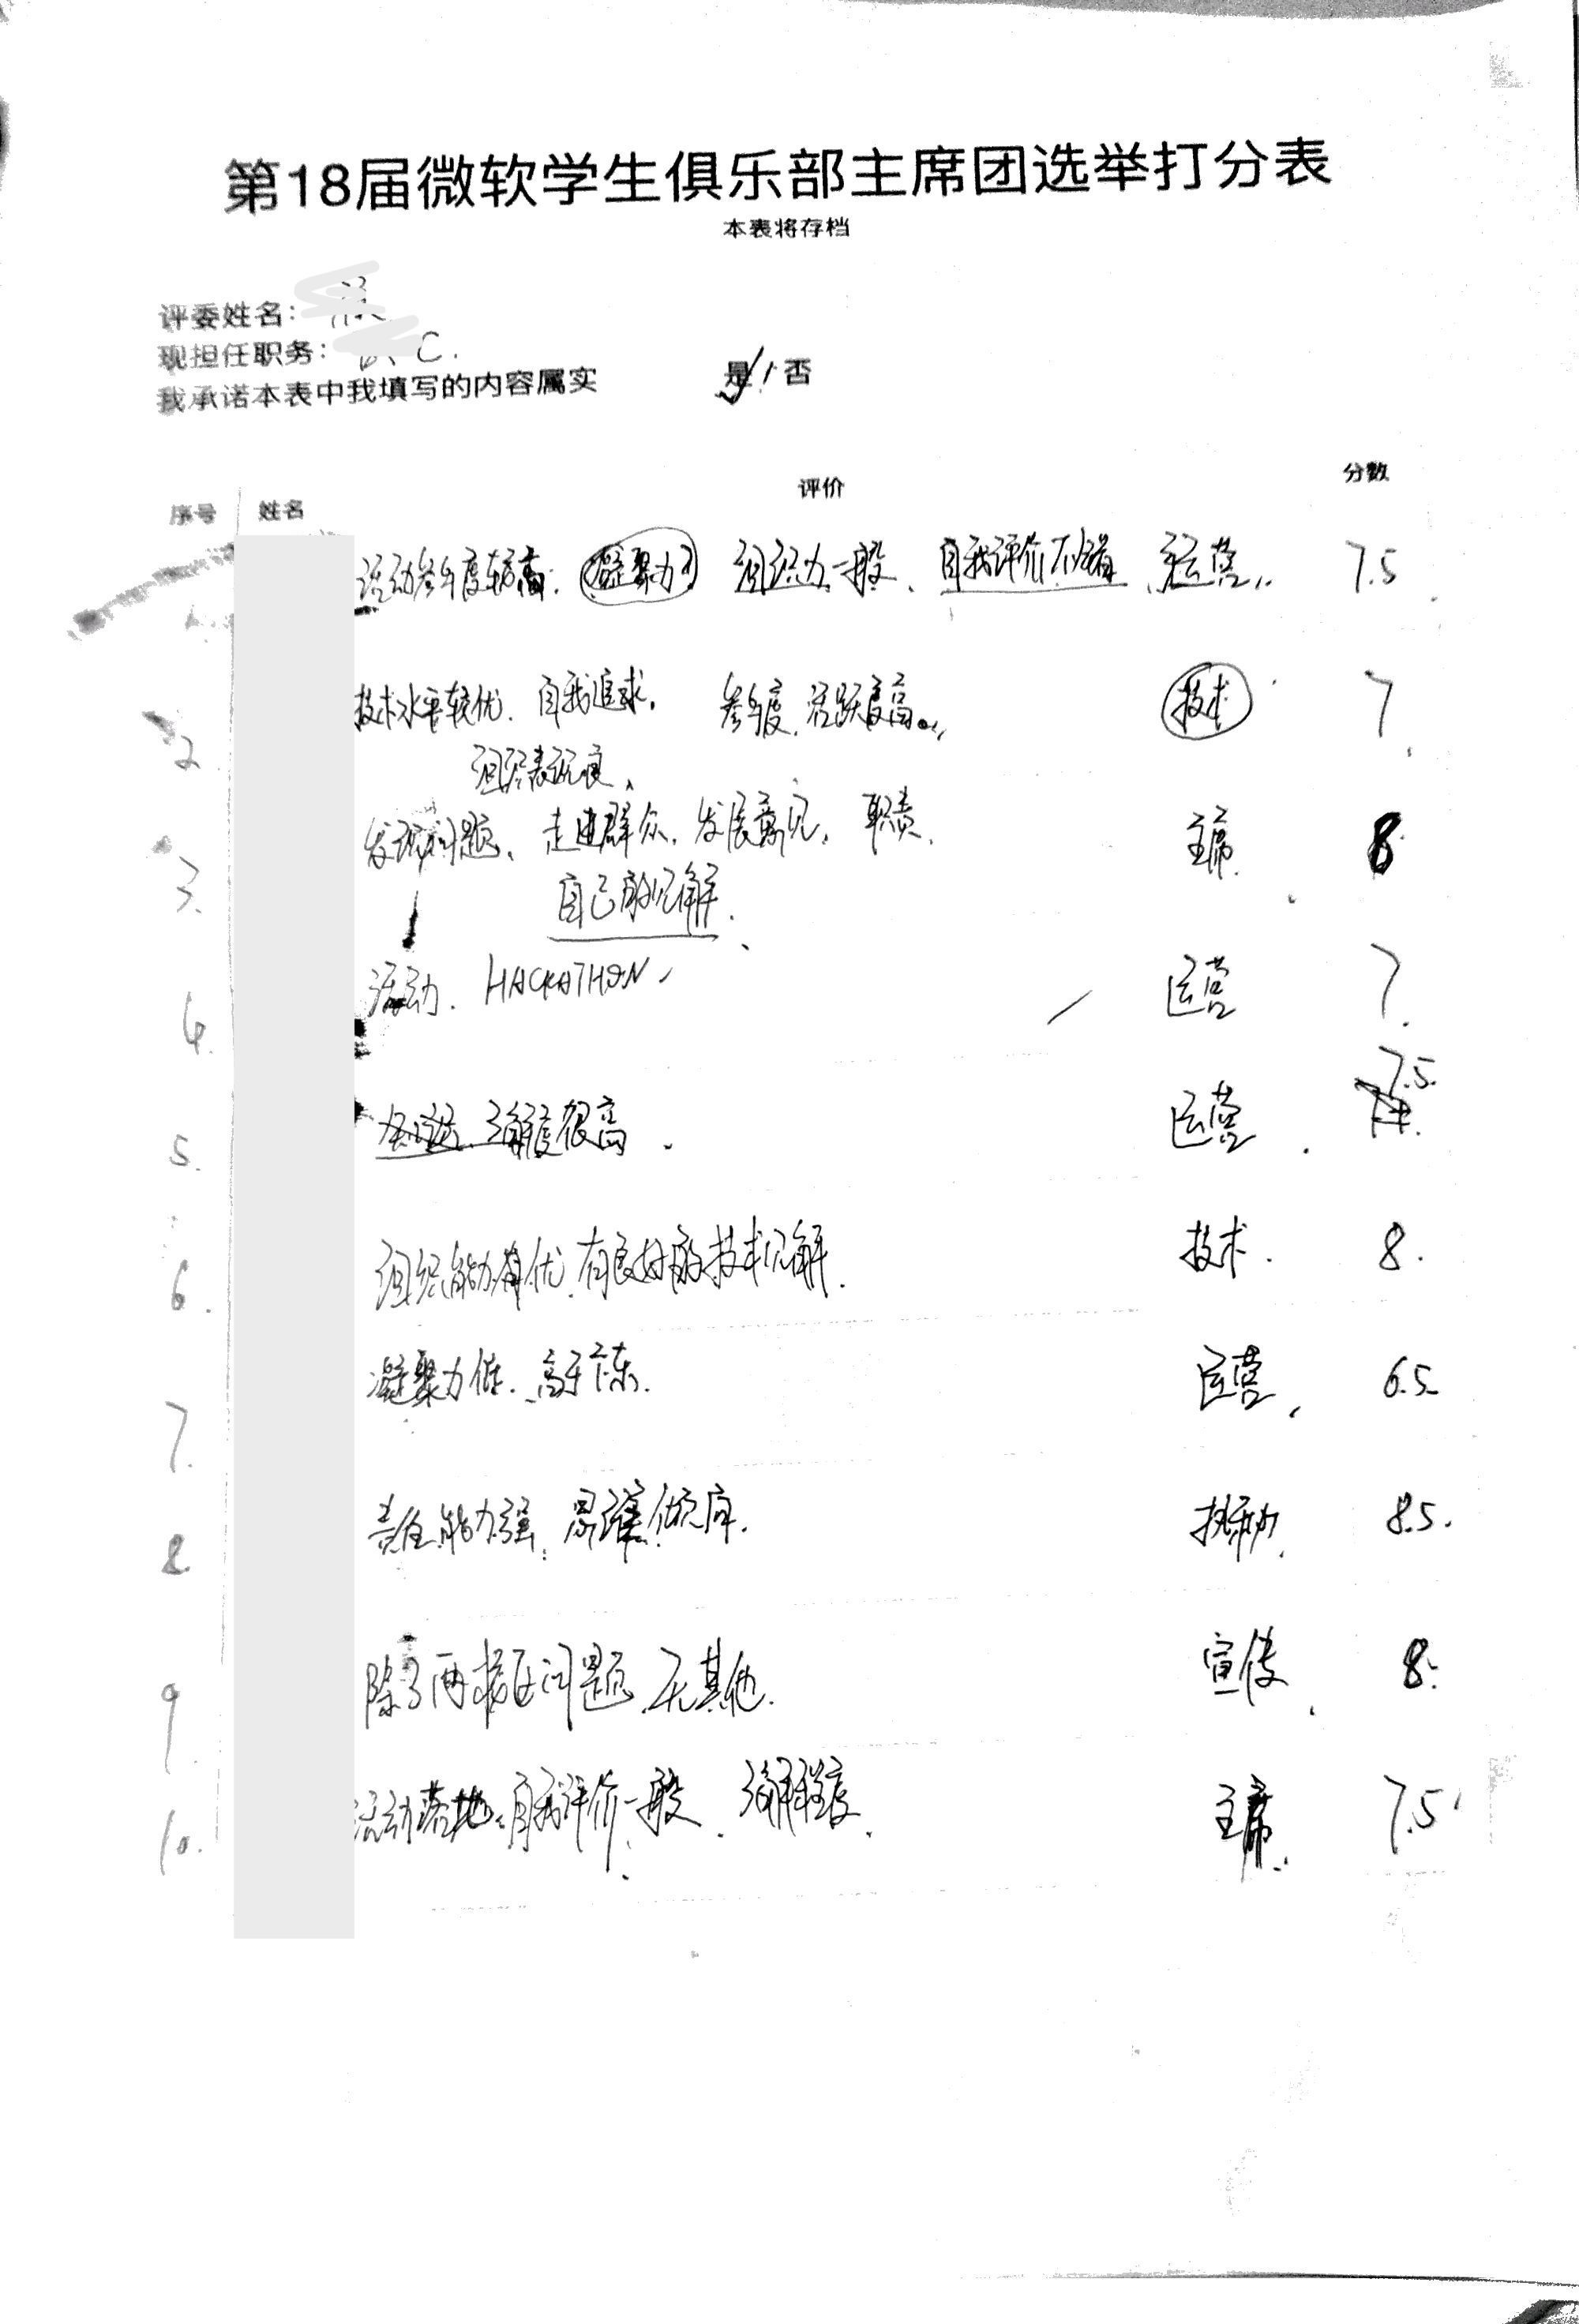 第18届微软学生俱乐部主席团选举打分表
本表将存档
评委姓名：
现担任职务： C.
我承诺本表中我填写的内容属实 是/否
序号 姓名 评价 分数
活动参与度较高. 凝聚力 组织力一般、自我评价不错、运营. 7.5
2 技术水平较优. 自我追求. 参与度.活跃度高. 技术 7
组织表现良、
3. 发现问题、走进群众.发展意见.职责. 主席. 8
自己的见解.
4. 活动. HACKATHON、 运营 7.
7.5.
5. 了解度很高. 运营.
6. 组织能力 优.有良好的技术见解. 技术. 8.
7. 凝聚力 . 运营, 6.5
8. 责任能力强. . 8.5.
9. 除了两 问题.无其他. 宣传. 8.
10. 活动落地.自我评价一般.了解程度. 主席. 7.5